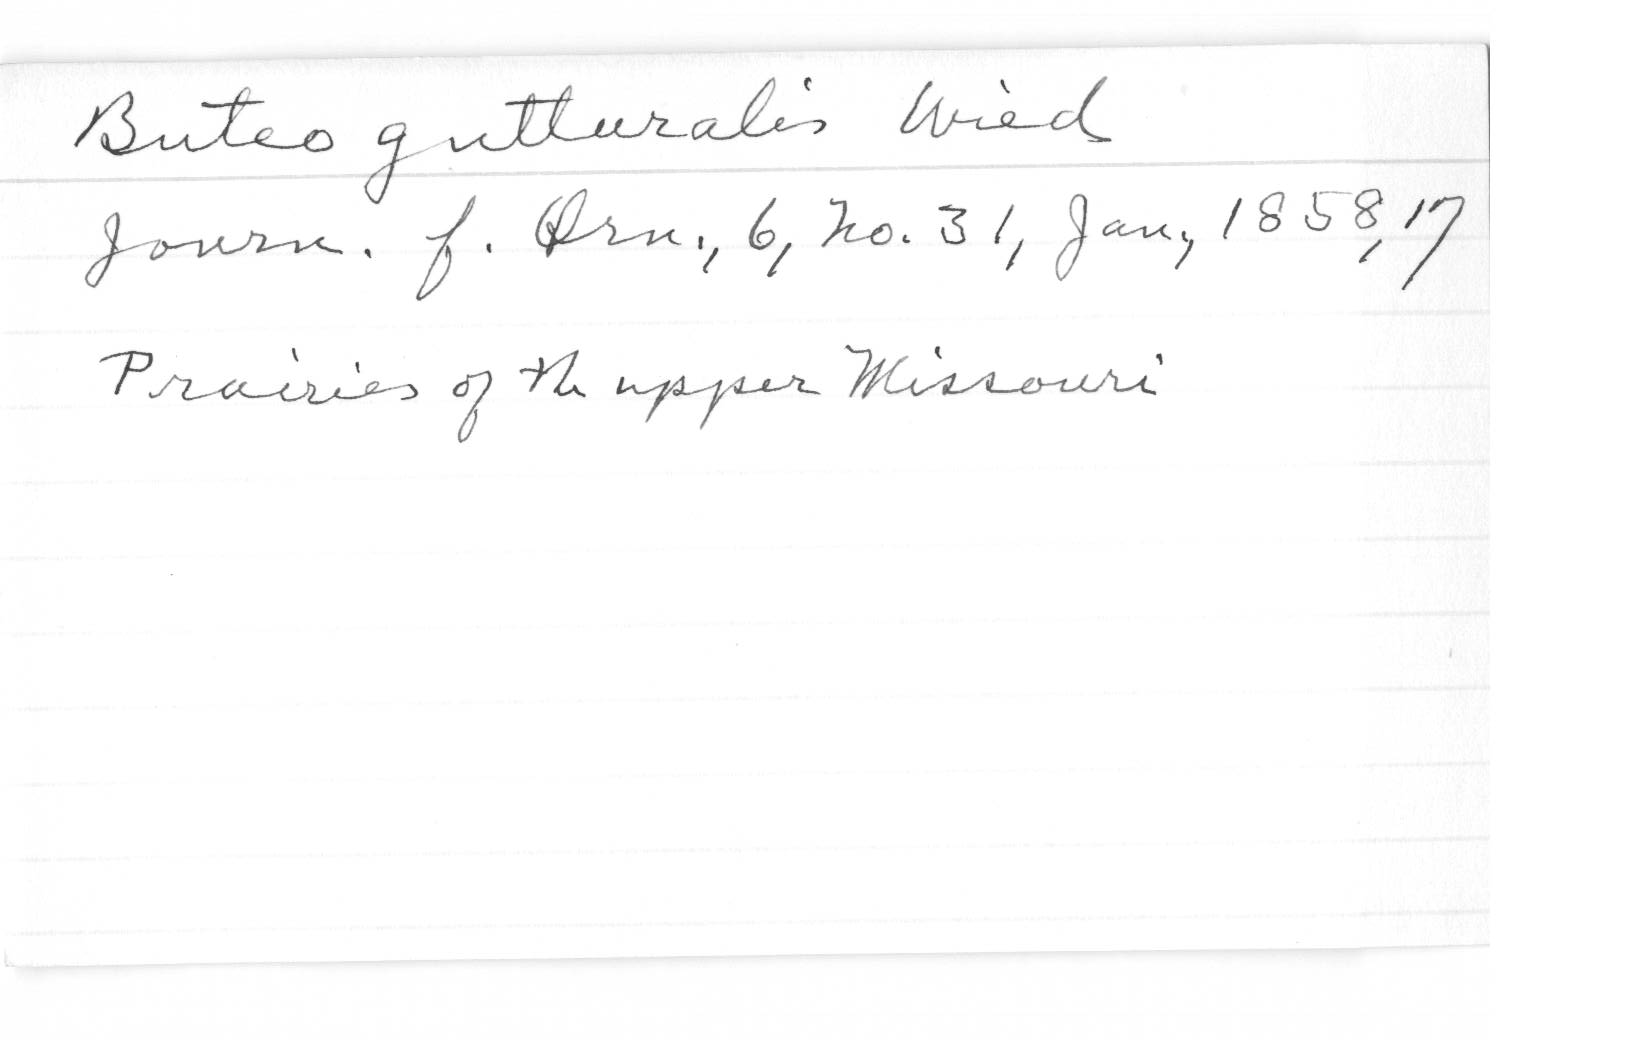 Buteo gutturalis Wied
Journ. f. Orn., 6, No. 31, Jan., 1858, 17
Prairies of the upper Missouri